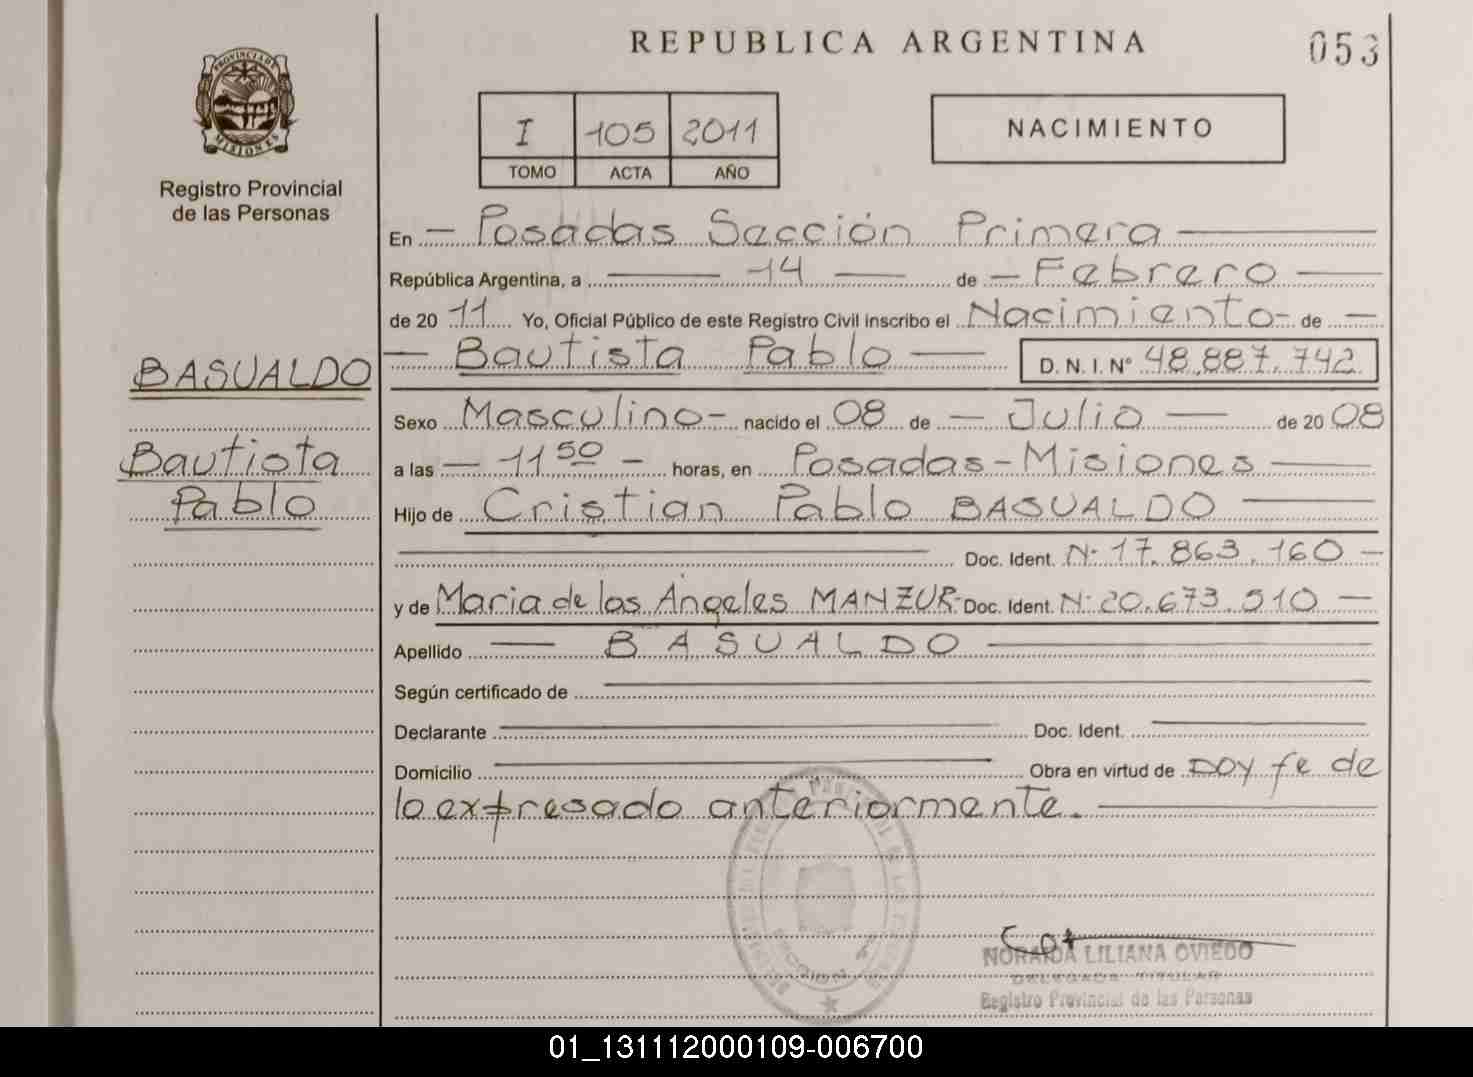 REPUBLICA ARGENTINA
053
PROVINCIA DE
MISIONES
Registro Provincial
de las Personas
I 105 2011
TOMO ACTA AÑO
NACIMIENTO
En - Posadas Sección Primera
República Argentina, a 14 de - Febrero
de 20 11 Yo, Oficial Público de este Registro Civil inscribo el Nacimiento - de -
Bautista Pablo D. N. I. Nº 48.887.742
BASUALDO
Bautista
Pablo
Sexo Masculino - nacido el 08 de - Julio - de 20 08
a las - 11 50 - horas, en Posadas - Misiones
Hijo de Cristian Pablo BASUALDO
Doc. Ident. Nº 17.863.160 -
y de Maria de los Ángeles MANZUR - Doc. Ident. Nº 20.673.510 -
Apellido - BASUALDO
Según certificado de
Declarante Doc. Ident.
Domicilio Obra en virtud de DOY fe de
lo expresado anteriormente.
NORAIDA LILIANA OVIEDO
DELEGADA TITULAR
Registro Provincial de las Personas
01_131112000109-006700